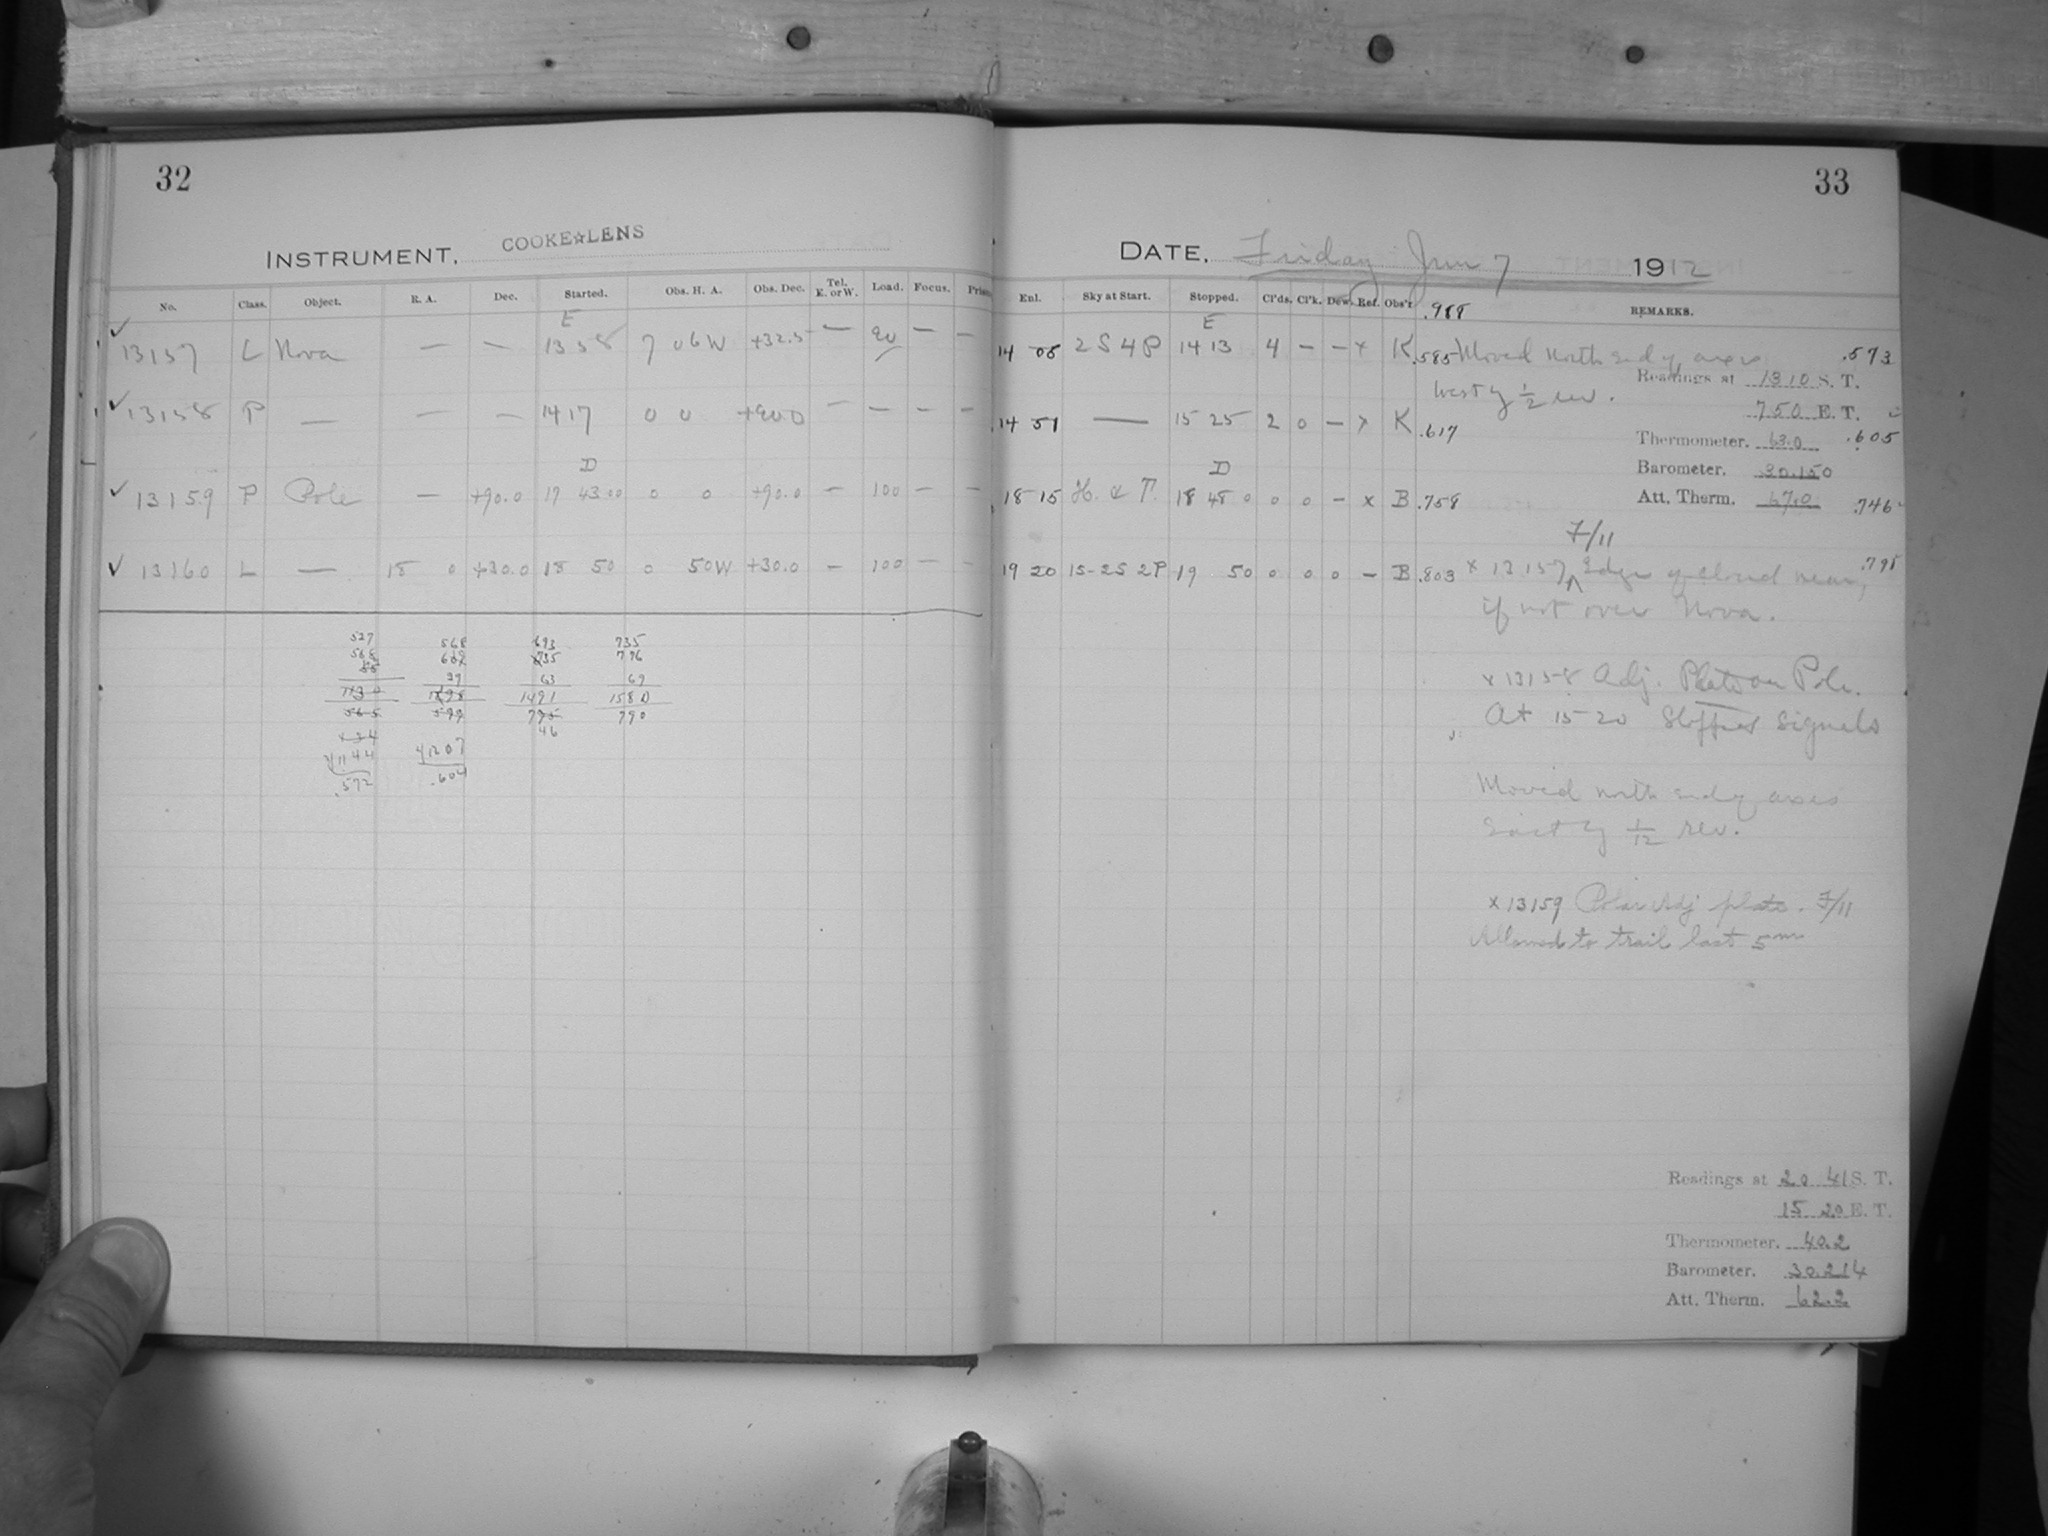 32
INSTRUMENT, COOKE☆LENS
No. Class. Object. R. A. Dec. Started. Obs. H. A. Obs. Dec. Tel. E. or W. Load. Focus. Prism
E
13157 L Nova — — 13 58 7 06W +32.5 — 20 — —
13158 P — — — 14 17 0 0 +90.0 — — — —
D
13159 P Pole — +90.0 17 43.00 0 0 +90.0 — 100 — —
13160 L — 18 0 +30.0 18 50 0 50W +30.0 — 100 — —
527 568 693 735
568 609 735 776
37 63 69
1130 1491 1580
565 599 790
46
1144 1207
.572 .604
33
DATE, Friday Jun 7 1912
Enl. Sky at Start. Stopped. Cl'ds. Cl'k. Dew. Ref. Obs'r. .988 REMARKS.
E
14 08 2 S 4 P 14 13 4 — — x K .585 Moved north end of axis .573
Readings at 13 10 S. T.
West by 1/2 rev.
7 50 E. T.
14 51 — 15 25 2 0 — x K .617
Thermometer. 63.0 .605
Barometer. 30.150
D
18 15 H. & T. 18 48 0 0 0 — x B .758
Att. Therm. 67.0 .746
F/11
19 20 15-2S 2P 19 50 0 0 0 — B .803 x 13157 ^ Edge of cloud near, .795
if not over Nova.
x 13158 Adj. Plate on Pole.
At 15 20 Stopped Signals
Moved north end of axis
East by 1/12 rev.
x 13159 Polar Adj plate. F/11
Allowed to trail last 5m
Readings at 20 41 S. T.
15 20 E. T.
Thermometer. 40.2
Barometer. 30.214
Att. Therm. 62.2